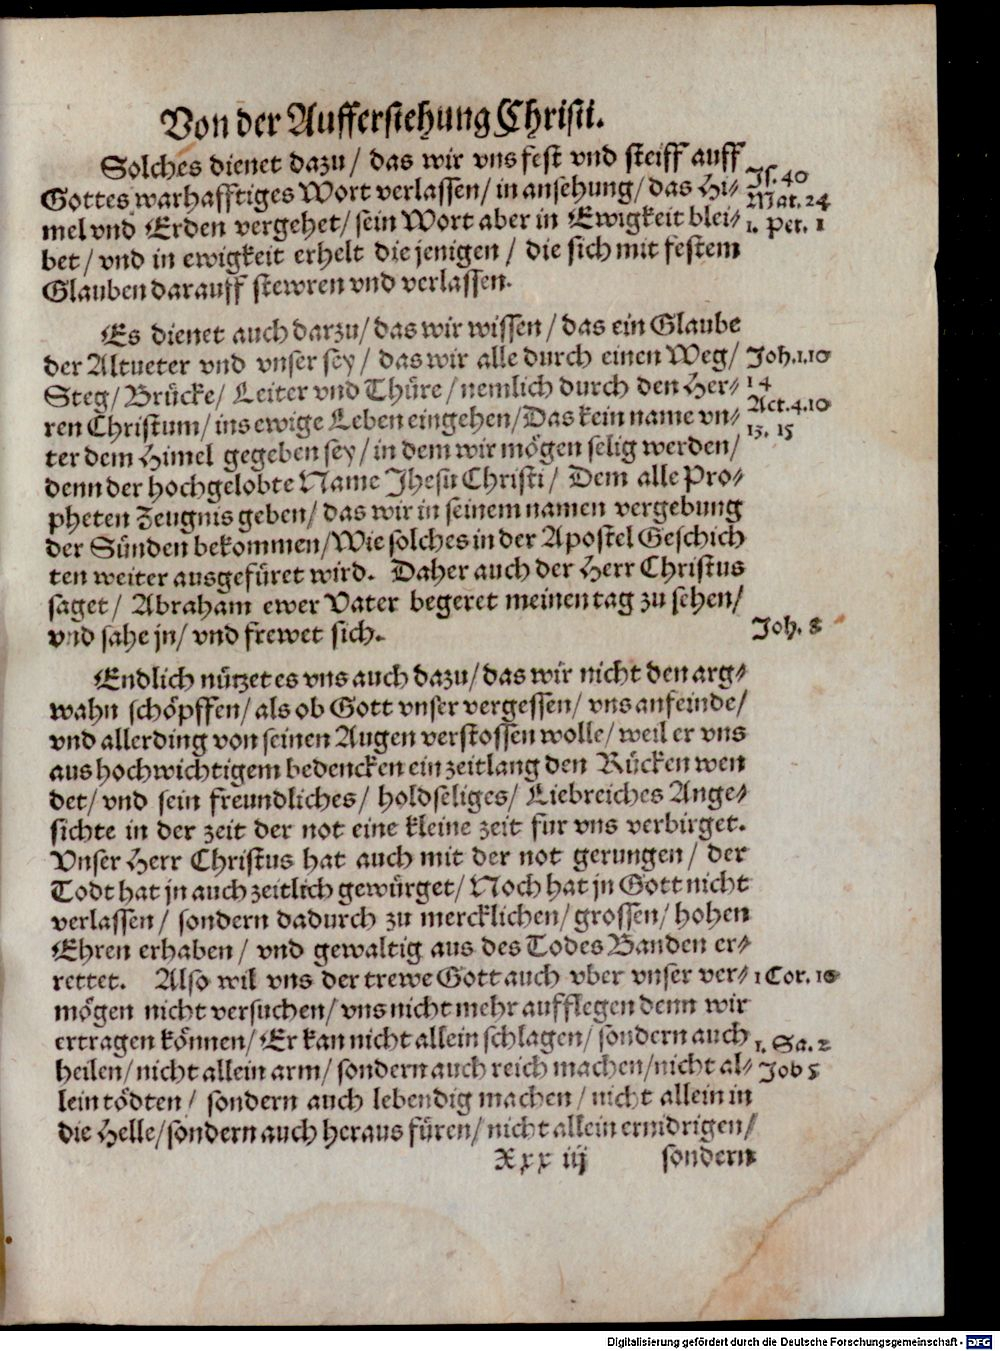 Von der Aufferstehung Christi.
Solches dienet dazu/ das wir vns fest vnd steiff auff
Gottes warhafftiges Wort verlassen/ in ansehung/ das Hi-
mel vnd Erden vergehet/ sein Wort aber in Ewigkeit blei-
bet/ vnd in ewigkeit erhelt die jenigen/ die sich mit festem
Glauben darauff stewren vnd verlassen.
Js. 40
Mat. 24
1. Pet. 1
Es dienet auch darzu/ das wir wissen/ das ein Glaube
der Altueter vnd vnser sey/ das wir alle durch einen Weg/
Steg/ Brücke/ Leiter vnd Thüre/ nemlich durch den Her-
ren Christum/ ins ewige Leben eingehen/ Das kein name vn-
ter dem Himel gegeben sey/ in dem wir mögen selig werden/
denn der hochgelobte Name Jhesu Christi/ Dem alle Pro-
pheten Zeugnis geben/ das wir in seinem namen vergebung
der Sünden bekommen/ Wie solches in der Apostel Geschich
ten weiter ausgefüret wird. Daher auch der Herr Christus
saget/ Abraham ewer Vater begeret meinen tag zu sehen/
vnd sahe jn/ vnd frewet sich.
Joh. 1. 10
14
Act. 4. 10
13. 15
Joh. 8
Endlich nützet es vns auch dazu/ das wir nicht den arg-
wahn schöpffen/ als ob Gott vnser vergessen/ vns anfeinde/
vnd allerding von seinen Augen verstossen wolle/ weil er vns
aus hochwichtigem bedencken ein zeitlang den Rücken wen
det/ vnd sein freundliches/ holdseliges/ Liebreiches Ange-
sichte in der zeit der not eine kleine zeit fur vns verbirget.
Vnser Herr Christus hat auch mit der not gerungen/ der
Todt hat jn auch zeitlich gewürget/ Noch hat jn Gott nicht
verlassen/ sondern dadurch zu mercklichen/ grossen/ hohen
Ehren erhaben/ vnd gewaltig aus des Todes Banden er-
rettet. Also wil vns der trewe Gott auch vber vnser ver-
mögen nicht versuchen/ vns nicht mehr aufflegen denn wir
ertragen können/ Er kan nicht allein schlagen/ sondern auch
heilen/ nicht allein arm/ sondern auch reich machen/ nicht al-
lein tödten/ sondern auch lebendig machen/ nicht allein in
die Helle/ sondern auch heraus füren/ nicht allein ernidrigen/
1 Cor. 10
1. Sa. 2
Job 5
Xxx iij sondern
Digitalisierung gefördert durch die Deutsche Forschungsgemeinschaft - DFG